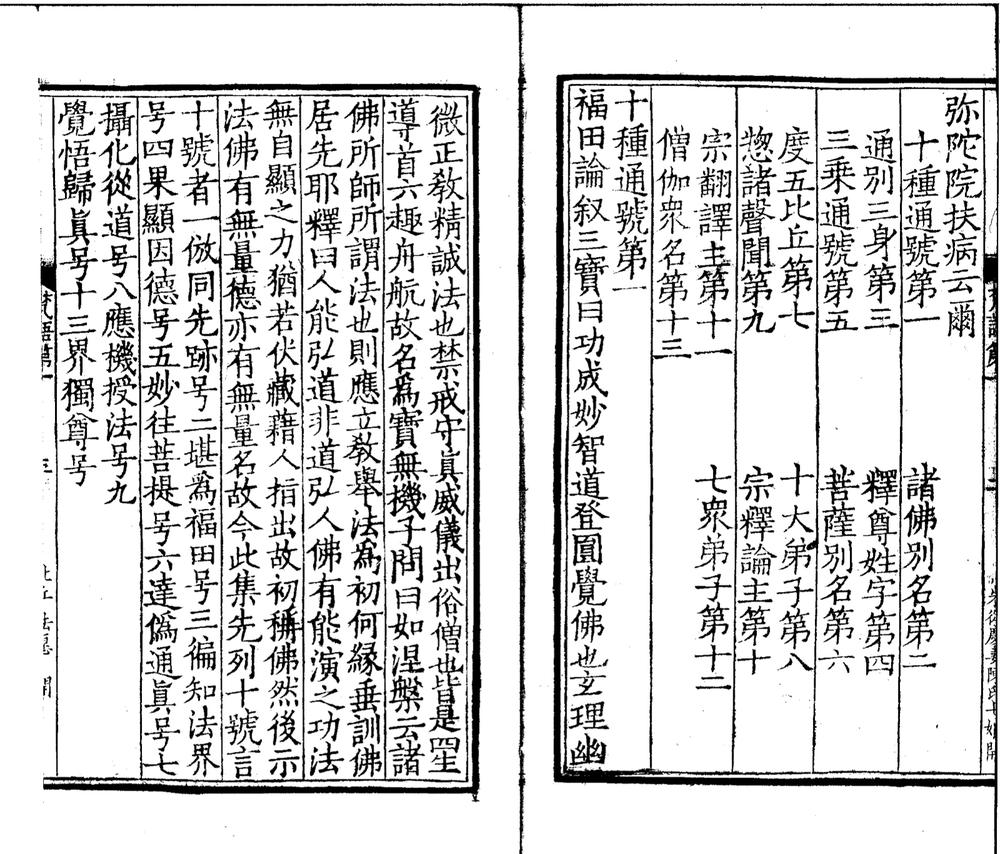 弥陀院扶病云爾
十種通號第一　諸佛別名第二
通別三身第三　釋尊姓字第四
三乗通號第五　菩薩別名第六
度五比丘第七　十大弟子第八
惣諸聲聞第九　宗釋論主第十
宗翻譯主第十一　七眾弟子第十二
僧伽眾名第十三
十種通號第一
福田論叙三寶曰功成妙智道登圓覺佛也玄理幽
微正敎精誠法也禁戒守真威儀出俗僧也皆是四生
導首六趣舟航故名爲寶無機子問曰如涅槃云諸
佛所師所謂法也則應立敎舉法爲初何緣垂訓佛
居先耶釋曰人能弘道非道弘人佛有能演之功法
無自顯之力猶若伏藏藉人指出故初稱佛然後示
法佛有無量德亦有無量名故今此集先列十號言
十號者一倣同先跡号二堪爲福田号三徧知法界
号四果顯因德号五妙往菩提号六達僞通眞号七
攝化從道号八應機授法号九
覺悟歸眞号十三界獨尊号
梵語第一
三